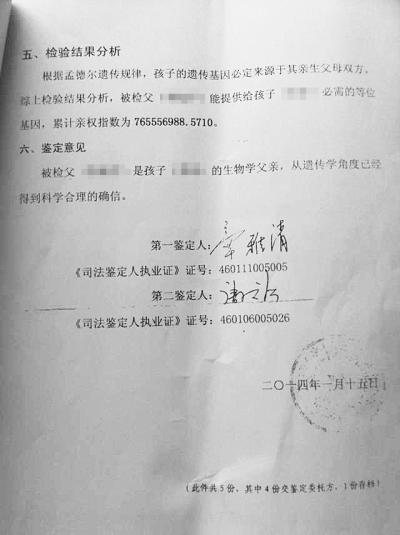 五、检验结果分析
根据孟德尔遗传规律，孩子的遗传基因必定来源于其亲生父母双方。
综上检验结果分析，被检父 能提供给孩子 必需的等位
基因，累计亲权指数为 765556988.5710。
六、鉴定意见
被检父 是孩子 的生物学父亲，从遗传学角度已经
得到科学合理的确信。
第一鉴定人：
《司法鉴定人执业证》证号：460111005005
第二鉴定人：
《司法鉴定人执业证》证号：460106005026
二〇一四年一月十五日
（此件共5份，其中4份交鉴定委托方，1份存档）